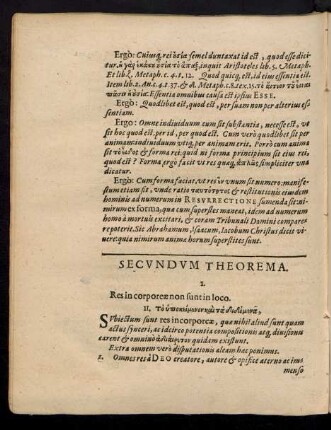 Ergò: Cuiusq, rei ὀσία semel duntaxat id est, quod esse dici-
tur. inquit Aristoteles lib. 5. Metaph.
Et lib. Metaph. c. 4. t. 12. Quod quicq, est, id eius essentia est.
Item lib. 2. An. c. 4. t. 37. & Metaph. t.
Essentia omnibus causa est ipsius ESSE.
Ergò: Quodlibet est, quod est, per suam non per alterius es-
sentiam.
Ergo: Omne individuum cum sit substantia, necesse est, ve
sit hoc quod est per id, per quod est. Cum verò quodlibet sit per
animam individuum utiq, per animam erit. Porrò cum anima
sit & forma rei quid ni forma principium sit eius rei,
quod est? Forma ergò facit ut res quæq, simpliciter una
dicatur.
Ergò: Cum forma faciat, ut res sit unum numero: manife-
stum etiam sit, unde ratio & restitutionis eiusdem
hominis ad numerum in RESURRECTIONE sumenda sit: ni-
mirum ex forma, qua cum superstes maneat, idem ad numerum
homo à mortuis excitari, & coram Tribunali Domini compa-
rere poterit. Sic Abrahamum, Isaacum, Iacobum Christus dicit vi-
vere: quia nimirum anima horum superstites sunt.
SECVNDVM THEOREMA.
I.
Res incorporeæ non sunt in loco.
II.
SVbiectum sunt res incorporeæ, qua nihil aliud sunt quam
actus synceri, ac idcirco potentia compositionis atq, divisionu
carent & omnino quidem existunt.
Extra omnem verò disputationis aleam hac ponimus.
1. Omnes res à DEO creatore, autore & opifice aterno ac im-
menso